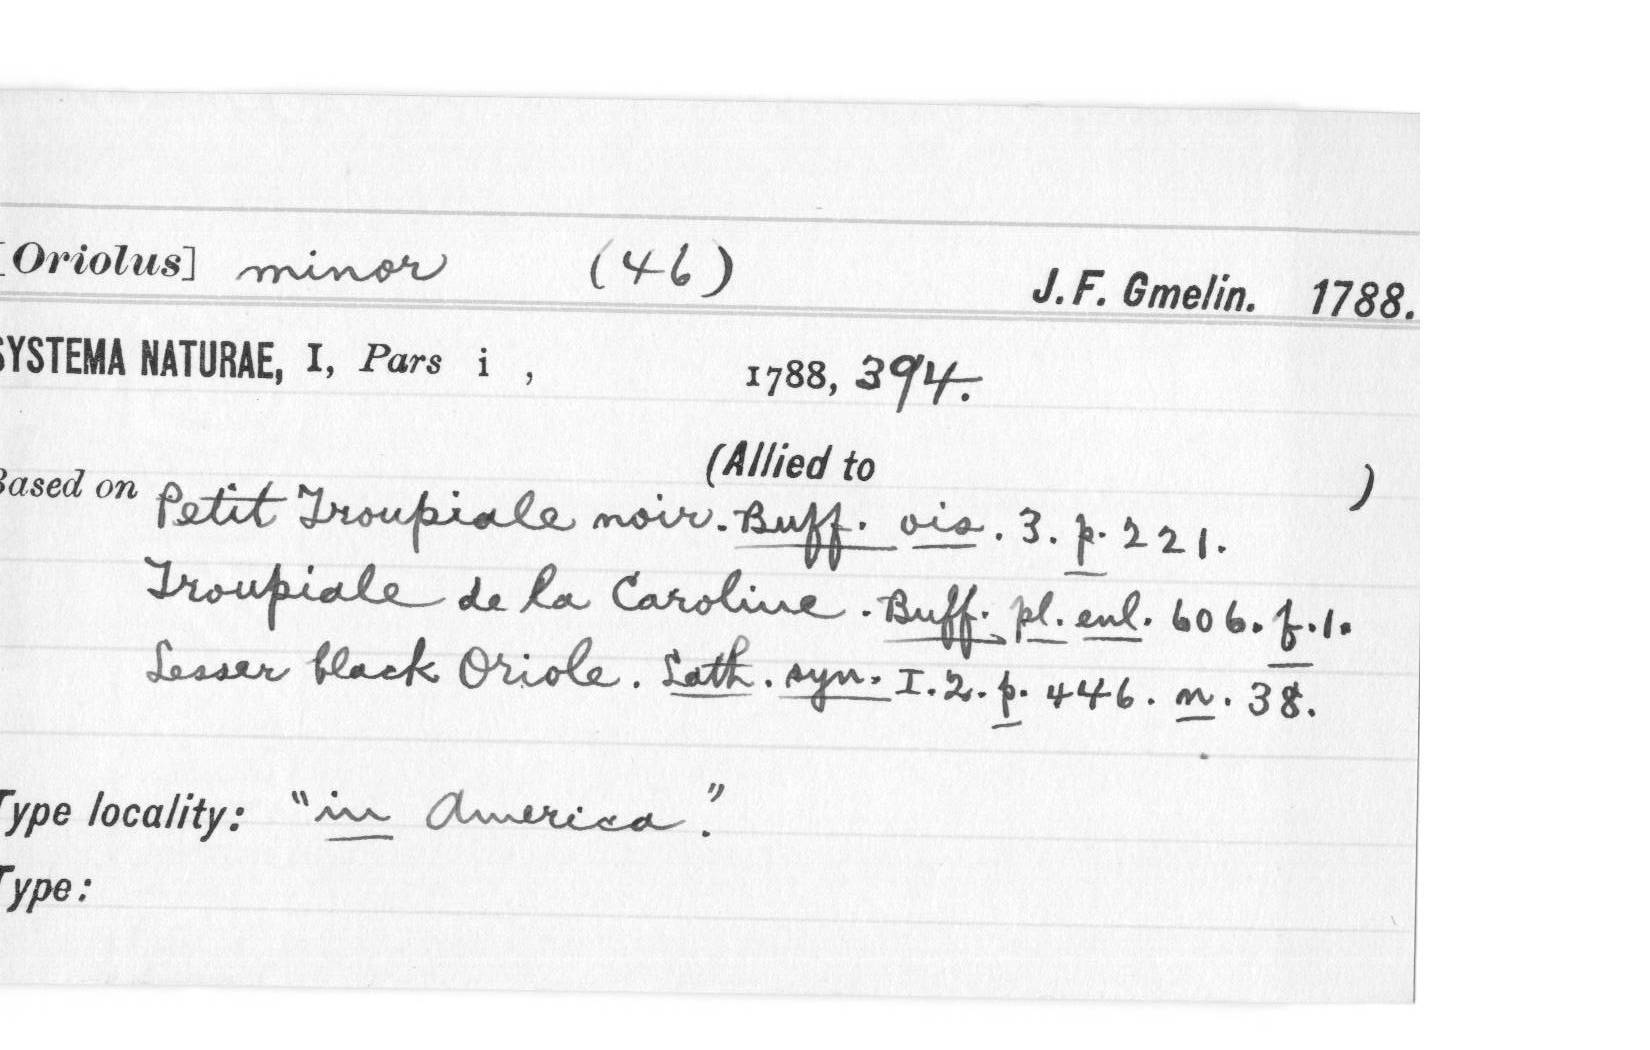 [Oriolus] minor (46) J. F. Gmelin. 1788.
SYSTEMA NATURAE, I, Pars i , 1788, 394.
(Allied to )
Based on Petit Troupiale noir. Buff. ois. 3. p. 221.
Troupiale de la Caroline. Buff. pl. enl. 606. f. 1.
Lesser black Oriole. Lath. syn. I. 2. p. 446. n. 38.
Type locality: "in America."
Type: